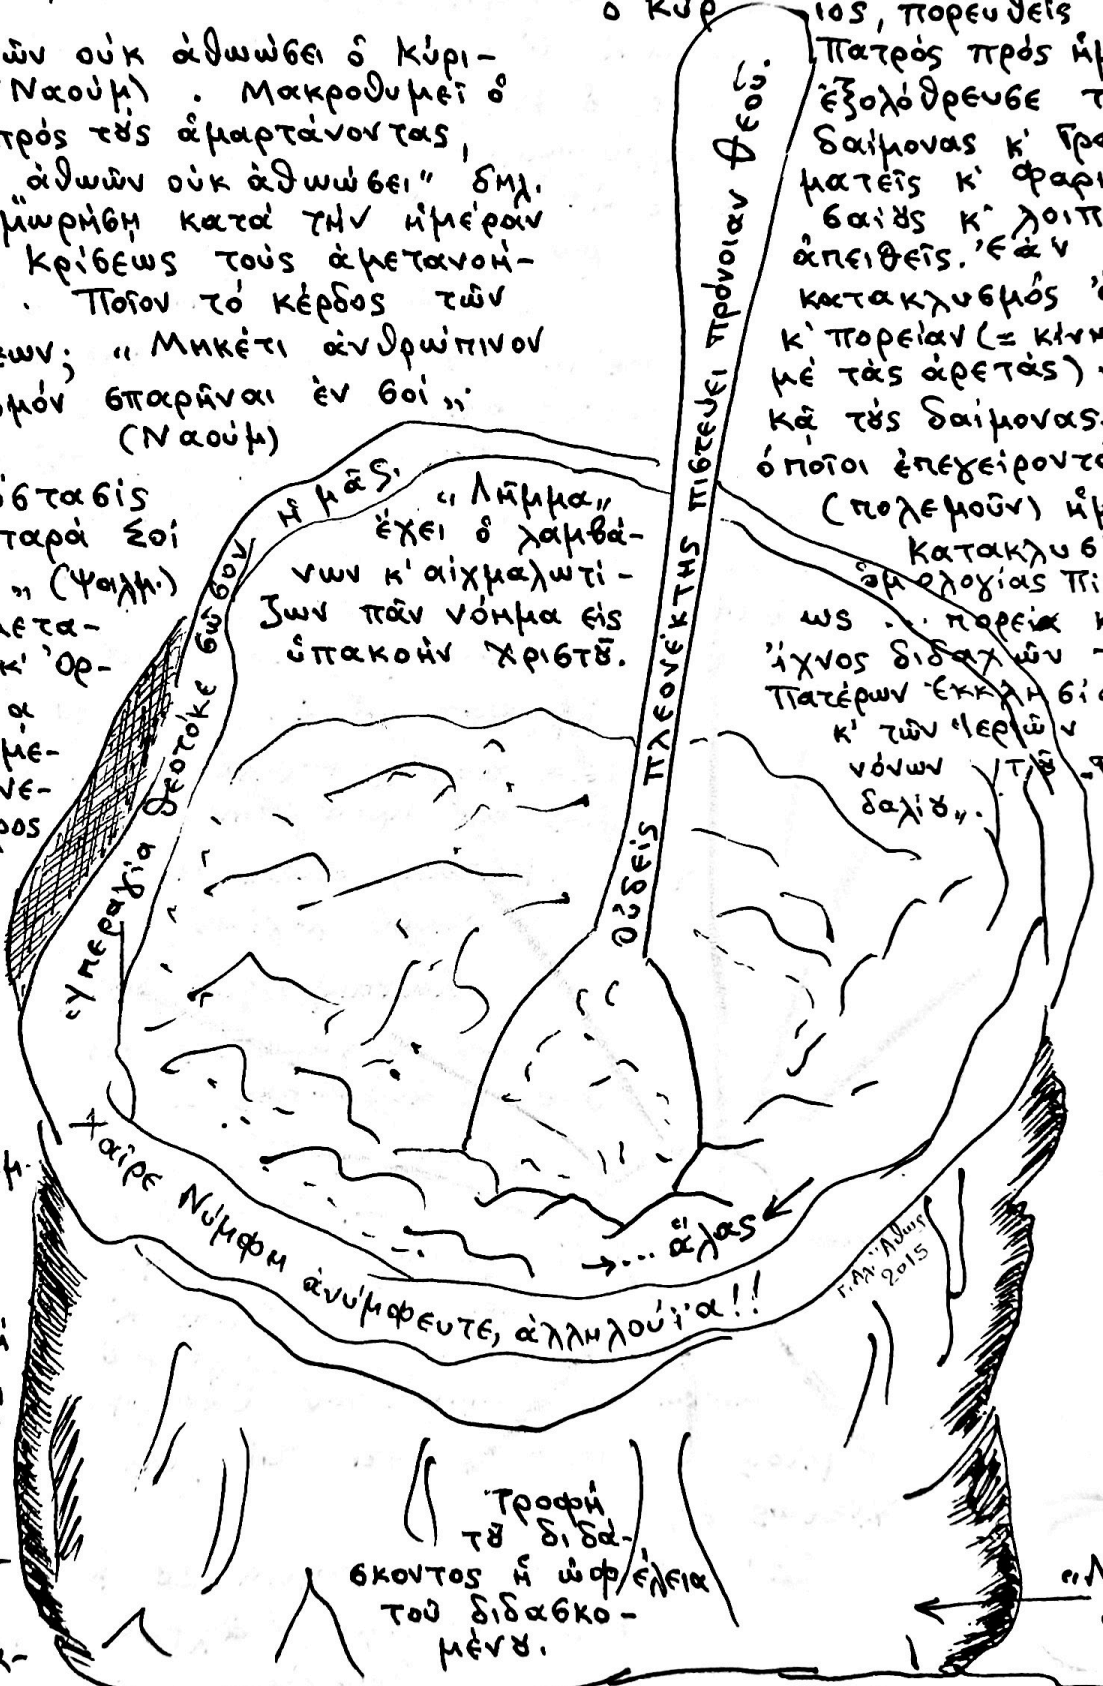 ῶν οὐκ ἀθωώσει ὁ Κύρι-
Ναούμ) . Μακροθυμεῖ ὁ
πρός τούς ἁμαρτάνοντας,
ἀθωῶν οὐκ ἀθωώσει" δηλ.
μωρήσῃ κατά τήν ἡμέραν
κρίσεως τούς ἀμετανοή-
. Ποῖον τό κέρδος τῶν
εων; „ Μηκέτι ἀνθρώπινον
σμόν σπαρῆναι ἐν σοί „;
(Ναούμ)
στασίς
παρά Σοί
„ (Ψαλμ.)
μετα-
κ' Ὀρ-
α
μέ-
νε-
ρος
ὁ Κύρ ιος, πορευθείς
Πατρός πρός ἡμ
ἐξολόθρευσε τ
δαίμονας κ' Γρα
ματεῖς κ' Φαρι
σαίους κ' λοιπ
ἀπειθεῖς. Ἐάν
κατακλυσμός
κ' πορείαν (= κίνη
μέ τάς ἀρετάς)
κᾷ τούς δαίμονας.
ὁποῖοι ἐπεγείροντα
(πολεμοῦν) ἡμ
κατακλυσ
ὁμολογίας Πί
ως ... πορεία κ
ἴχνος διδαχῶν
Πατέρων Ἐκκλησί
κ' τῶν Ἱερῶν
νόνων τοῦ
δαλίου„.
Οὐδείς πλεονέκτης πιστεύει πρόνοιαν Θεοῦ.
„ Λῆμμα„
ἔχει ὁ λαμβά-
νων κ' αἰχμαλωτί-
ζων πᾶν νόημα εἰς
ὑπακοήν Χριστοῦ.
"Υπεραγία Θεοτόκε σῶσον ἡμᾶς.
Χαῖρε Νύμφη ἀνύμφευτε, ἀλληλούϊα!!
→... ἅλας
2015
Τροφή
τοῦ διδά-
σκοντος ἡ ὠφέλεια
τοῦ διδασκο-
μένου.